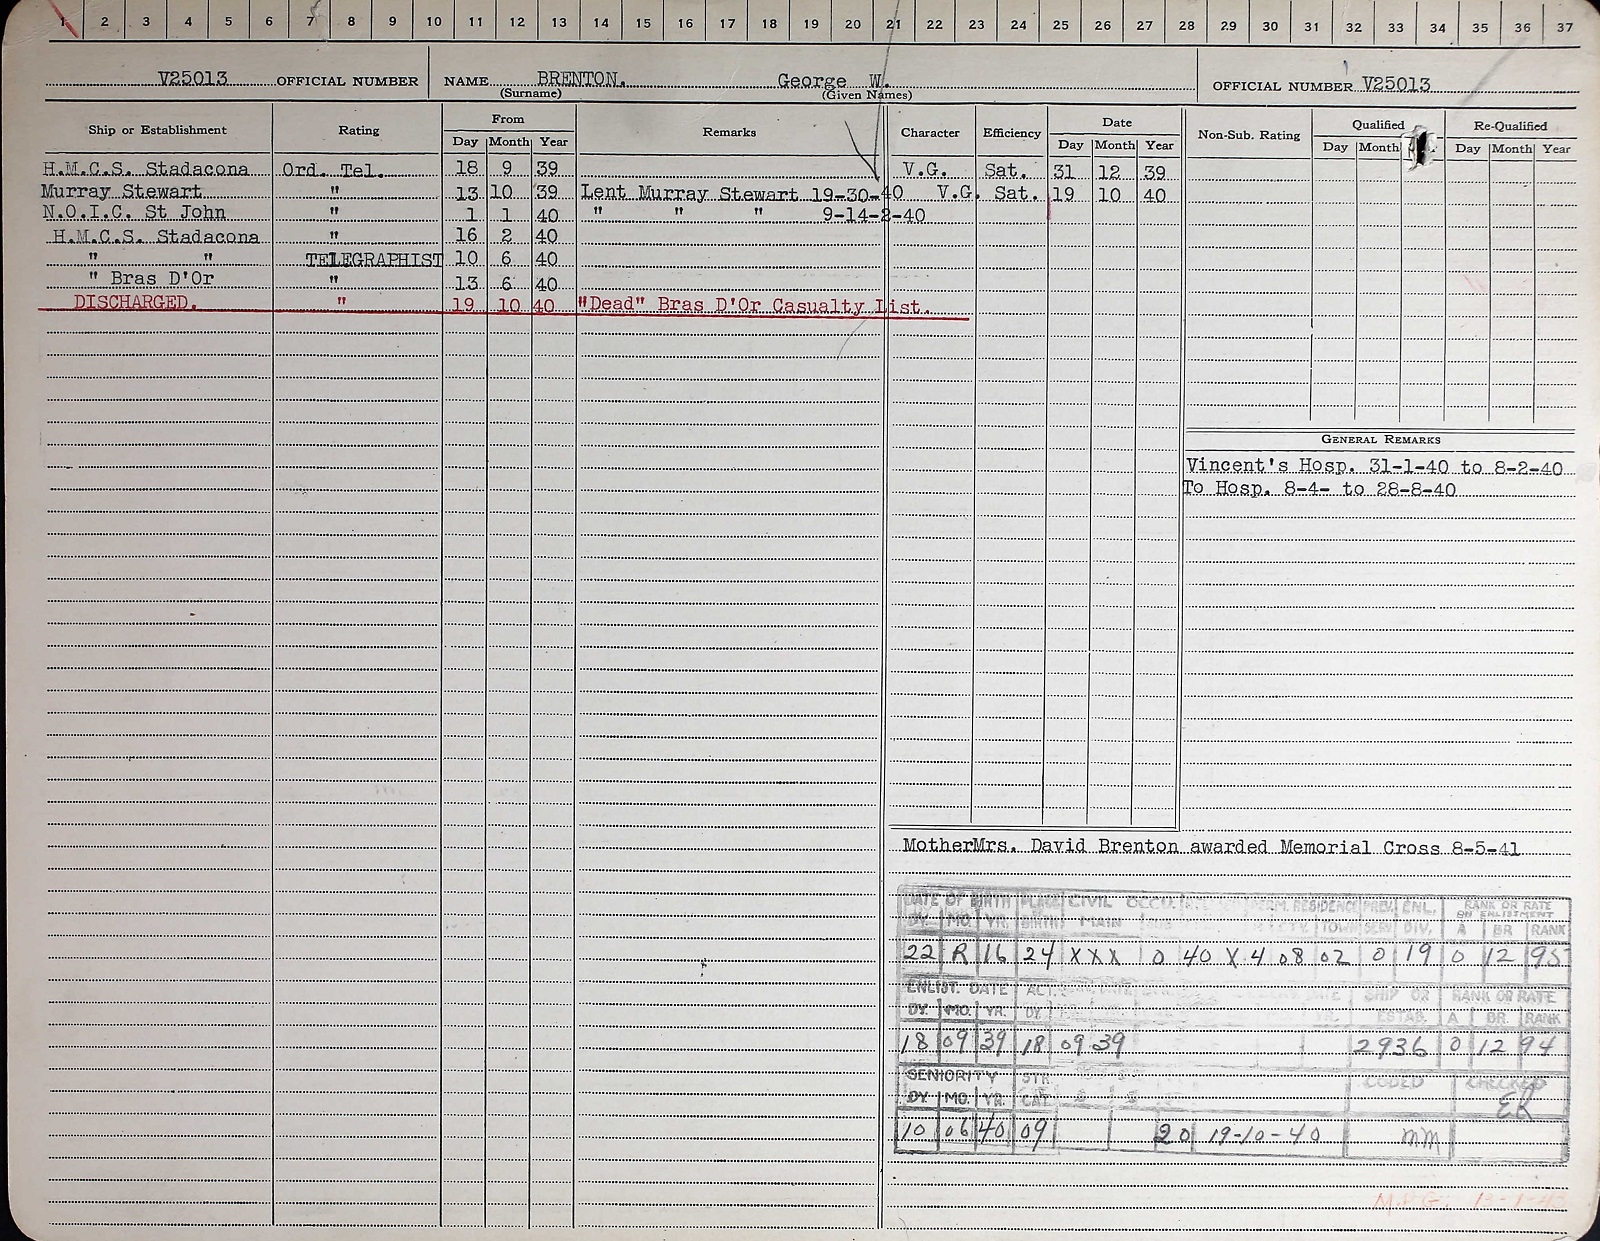 1 2 3 4 5 6 7 8 9 10 11 12 13 14 15 16 17 18 19 20 21 22 23 24 25 26 27 28 29 30 31 32 33 34 35 36 37
V25013 OFFICIAL NUMBER NAME BRENTON. George W. OFFICIAL NUMBER V25013
(Surname) (Given Names)
Ship or Establishment Rating From Remarks Character Efficiency Date Non-Sub. Rating Qualified Re-Qualified
Day Month Year Day Month Year Day Month Day Month Year
H.M.C.S. Stadacona Ord. Tel. 18 9 39 V.G. Sat. 31 12 39
Murray Stewart " 13 10 39 Lent Murray Stewart 19-30-40 V.G. Sat. 19 10 40
N.O.I.C. St John " 1 1 40 " " " 9-14-2-40
H.M.C.S. Stadacona " 16 2 40
" " TELEGRAPHIST 10 6 40
" Bras D'Or " 13 6 40
DISCHARGED. " 19 10 40 "Dead" Bras D'Or Casualty List.
GENERAL REMARKS
Vincent's Hosp. 31-1-40 to 8-2-40
To Hosp. 8-4- to 28-8-40
MotherMrs. David Brenton awarded Memorial Cross 8-5-41
DATE OF BIRTH PLACE CIVIL OCCU. PERM. RESIDENCE PREV. ENL. RANK OR RATE
ON ENLISTMENT
DY. MO. YR. BIRTH MAIN TOWN SERV. DIV. A BR RANK
22 R 16 24 XXX 0 40 X 4 08 02 0 19 0 12 95
ENLIST. DATE ACT. SHIP OR RANK OR RATE
DY. MO. YR. DY. ESTAB. A BR. RANK
18 09 39 18 09 39 2936 0 12 94
SENIORITY STR. CODED CHECKED
DY. MO. YR. CAT. ER
10 06 40 09 20 19-10-40 MM